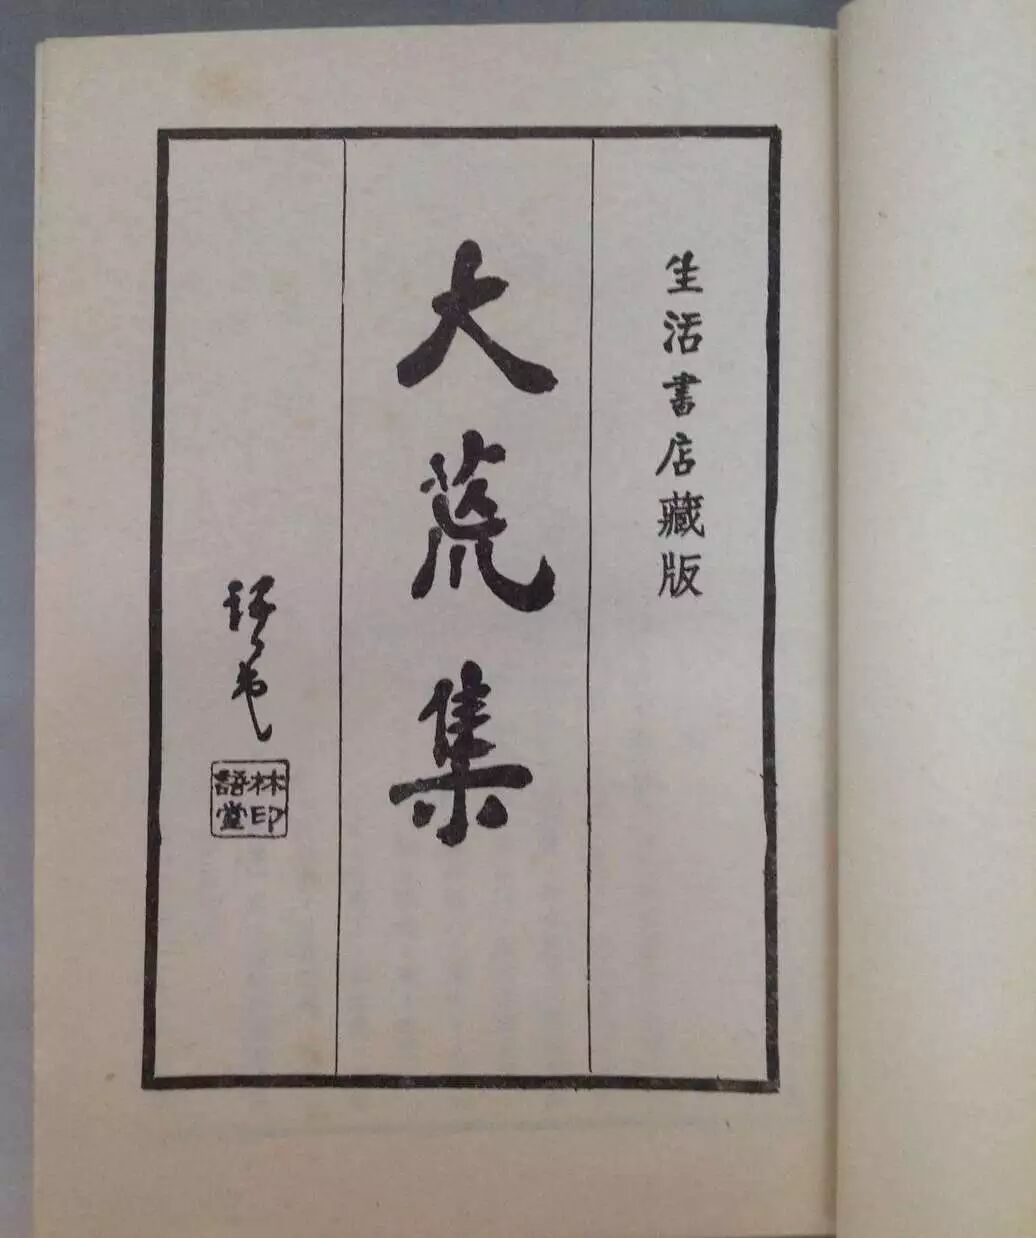 生活書店藏版
大荒集
語堂
林語堂印